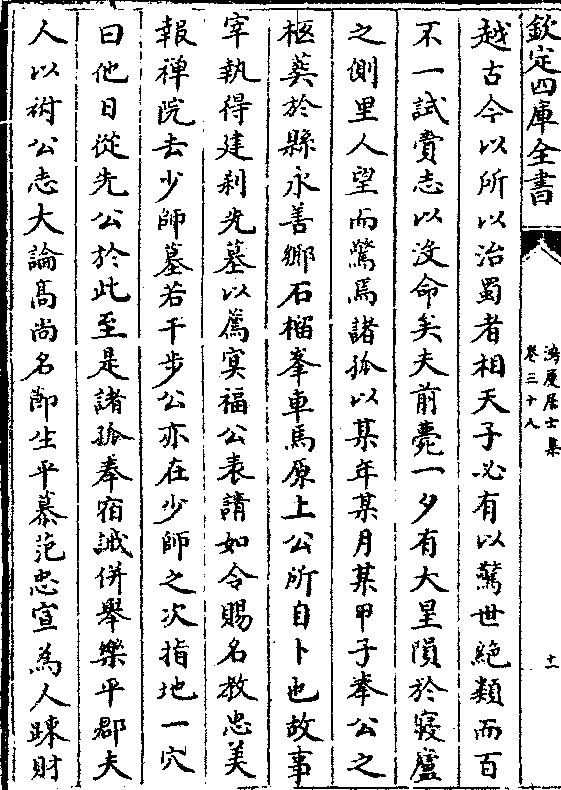 欽定四庫全書
鴻慶居士集
卷三十八
十一
越古今以所以治蜀者相天子必有以驚世絶類而百
不一試賫志以没命矣夫前薨一夕有大星隕於寝廬
之側里人望而驚焉諸孤以某年某月某甲子奉公之
柩葬於縣永善鄉石榴峯車馬原上公所自卜也故事
宰執得建刹先墓以薦冥福公表請如令賜名教忠美
報禪院去少師墓若干步公亦在少師之次指地一穴
曰他日從先公於此至是諸孤奉宿誡併舉樂平郡夫
人以祔公志大論髙尚名節生平慕范忠宣為人踈財